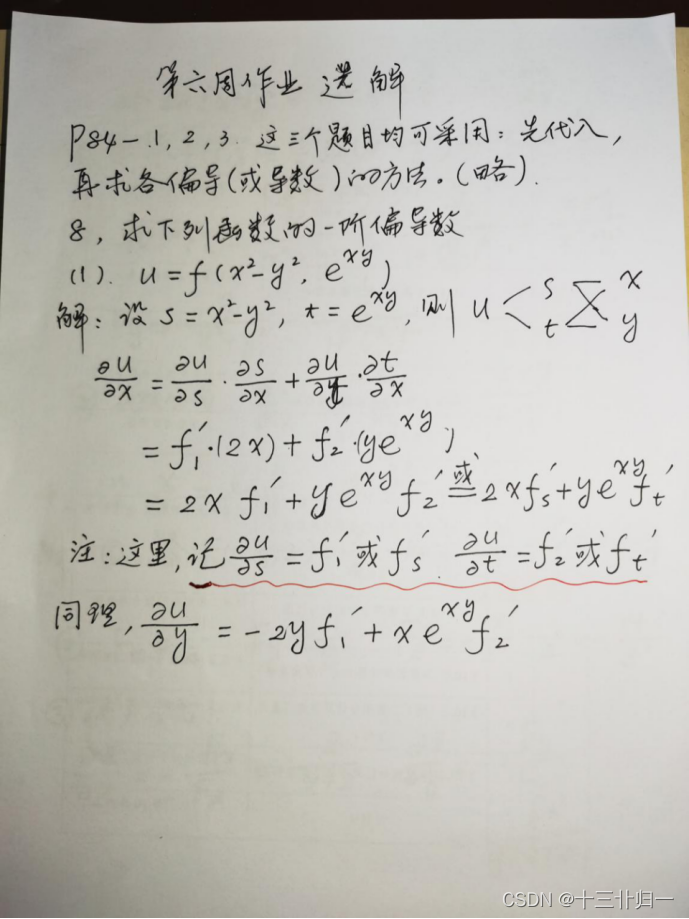 第六周作业 选解
P84-.1,2,3. 这三个题目均可采用:先代入,
再求各偏导(或导数)的方法。(略).
8, 求下列函数的一阶偏导数
(1). u=f(x²-y², e^{xy})
解:设 s=x²-y², t=e^{xy}, 则 u < s t x y
∂u/∂x = ∂u/∂s · ∂s/∂x + ∂u/∂t · ∂t/∂x
= f₁′·(2x) + f₂′·(ye^{xy})
= 2x f₁′ + ye^{xy} f₂′ 或= 2x fₛ′ + ye^{xy} fₜ′
注:这里,记 ∂u/∂s = f₁′ 或 fₛ′. ∂u/∂t = f₂′ 或 fₜ′
同理, ∂u/∂y = -2y f₁′ + x e^{xy} f₂′
CSDN @十三卝归一